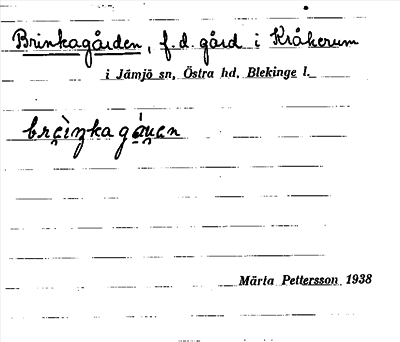 Brinkagården, f.d. gård i Kråkerum
i Jämjö sn, Östra hd, Blekinge l.
Märta Pettersson 1938